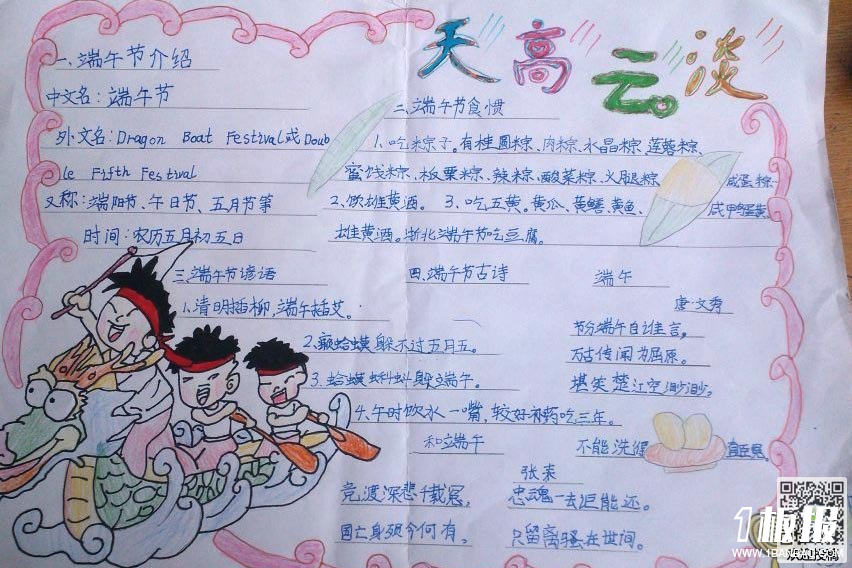 天高云淡
一、端午节介绍
中文名：端午节
外文名：Dragon Boat Festival或Doub
le Fifth Festival
又称：端阳节、午日节、五月节等
时间：农历五月初五日
二、端午节食惯
1、吃粽子。有桂圆粽、肉粽、水晶粽、莲蓉粽、
蜜饯粽、板栗粽、辣粽、酸菜粽、火腿粽、咸蛋粽
2、饮雄黄酒。3、吃五黄。黄瓜、黄鳝、黄鱼、咸鸭蛋黄、
雄黄酒。浙北端午节吃豆腐。
三、端午节谚语
1、清明插柳，端午插艾。
2、癞蛤蟆躲不过五月五。
3、蛤蟆蝌蚪躲端午。
4、午时饮水一嘴，较好补药吃三年。
四、端午节古诗
端午
唐·文秀
节分端午自谁言，
万古传闻为屈原。
堪笑楚江空渺渺，
不能洗得直臣冤。
和端午
张耒
竞渡深悲千载冤，忠魂一去讵能还。
国亡身殒今何有，只留离骚在世间。
1板报
WWW.1BANBAO.COM
欢迎投稿